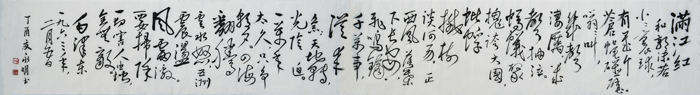 满江红
和郭沫若
小小寰球
有几个
苍蝇碰壁
嗡嗡叫
几声
凄厉几
声抽泣
蚂蚁缘
槐夸大国
蚍蜉
撼树
谈何易正
西风落叶
下长安
飞鸣镝
多少事
从来
急天地转
光阴迫
一万年
太久只争
朝夕四海
翻腾
云水怒五洲
震荡
风雷激
要扫除
一切害人虫
全无敌
一九六三年
一月九日
毛泽东
丁酉夏永明书